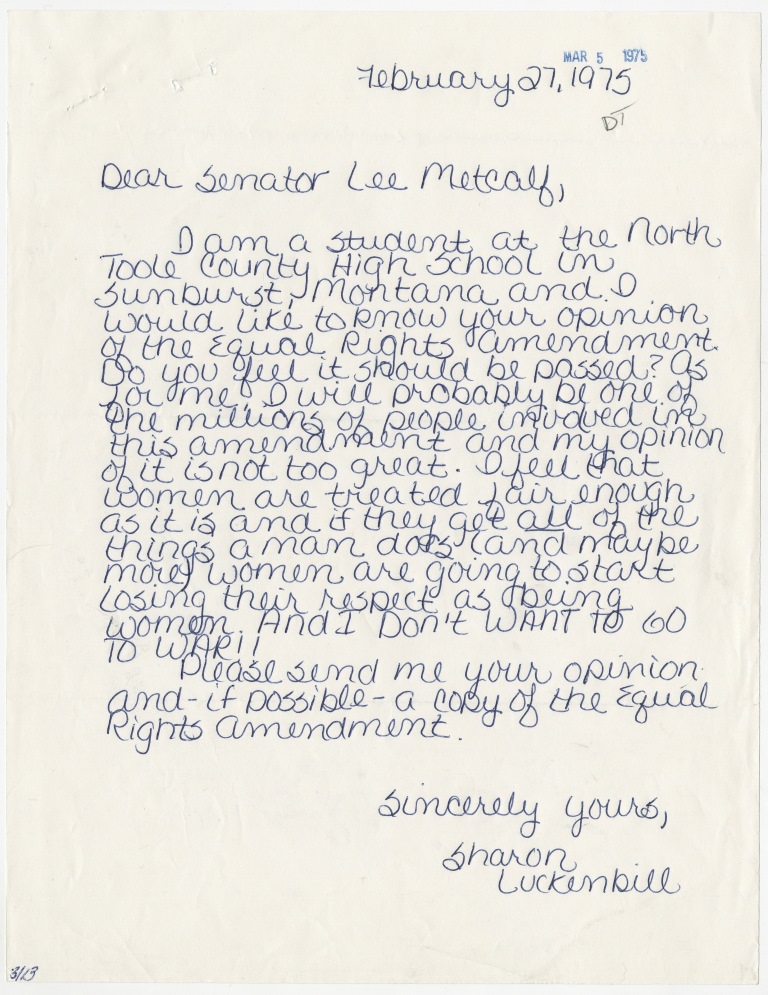 MAR 5 1975
February 27, 1975
DT
Dear Senator Lee Metcalf,
I am a student at the North
Toole County High School in
Sunburst, Montana and I
would like to know your opinion
of the Equal Rights Amendment.
Do you feel it should be passed? As
for me, I will probably be one of
the millions of people involved in
this amendment and my opinion
of it is not too great. I feel that
women are treated fair enough
as it is and if they get all of the
things a man does (and maybe
more) women are going to start
losing their respect as being
women. And I DON'T WANT TO GO
TO WAR!!
Please send me your opinion
and - if possible - a copy of the Equal
Rights Amendment.
Sincerely yours,
Sharon
Luckenbill
3/13